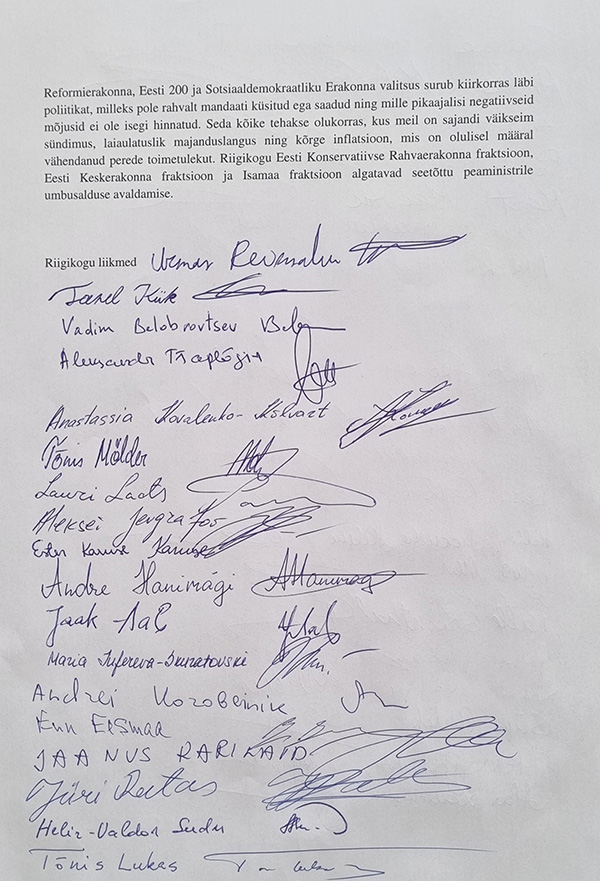 Reformierakonna, Eesti 200 ja Sotsiaaldemokraatliku Erakonna valitsus surub kiirkorras läbi
poliitikat, milleks pole rahvalt mandaati küsitud ega saadud ning mille pikaajalisi negatiivseid
mõjusid ei ole isegi hinnatud. Seda kõike tehakse olukorras, kus meil on sajandi väikseim
sündimus, laiaulatuslik majanduslangus ning kõrge inflatsioon, mis on olulisel määral
vähendanud perede toimetulekut. Riigikogu Eesti Konservatiivse Rahvaerakonna fraktsioon,
Eesti Keskerakonna fraktsioon ja Isamaa fraktsioon algatavad seetõttu peaministrile
umbusalduse avaldamise.
Riigikogu liikmed Urmas Reinsalu
Tanel Kiik
Vadim Belobrovtsev
Aleksandr Tšaplõgin
Anastassia Kovalenko-Kõlvart
Tõnis Mölder
Lauri Laats
Aleksei Jevgrafov
Ester Karuse Karuse
Andre Hanimägi
Jaak Aab
Maria Jufereva-Skuratovski
Andrei Korobeinik
Enn Eesmaa
JAANUS KARILAID
Jüri Ratas
Helir-Valdor Seeder
Tõnis Lukas